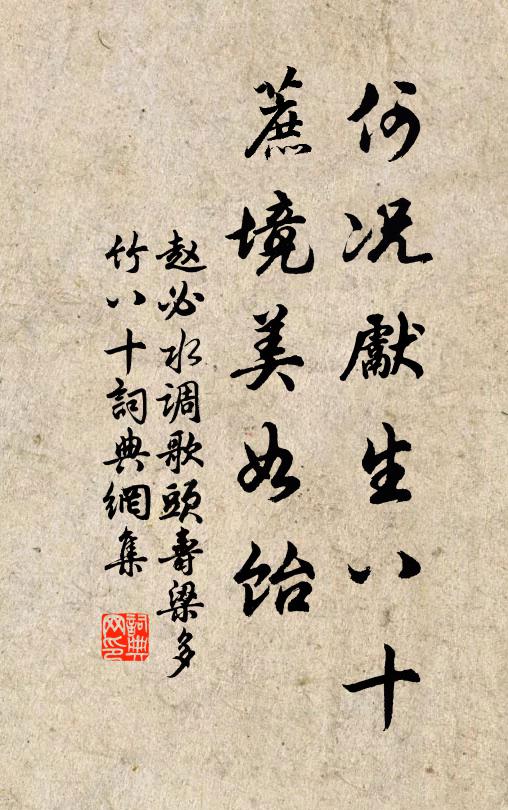 何况獻生八十
蔗境美如飴
赵必水调歌頭壽梁多
竹八十詞典網集
詞典
网印